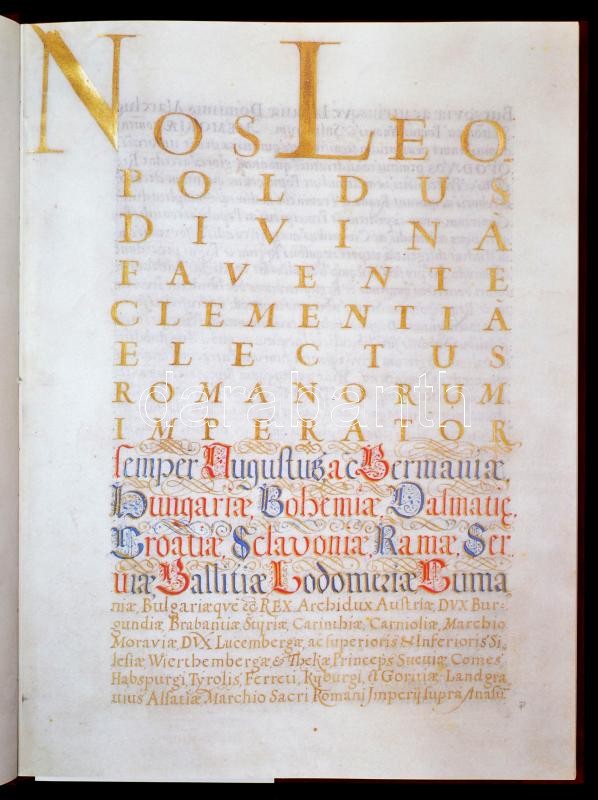 NOS LEO
POLDUS
DIVINÂ
FAVENTE
CLEMENTIÂ
ELECTUS
ROMANORUM
IMPERATOR
semper Augustus, ac Germaniæ,
Hungariæ, Bohemiæ, Dalmatię,
Croatiæ, Sclavoniæ, Ramæ, Ser-
viæ Gallitiæ Lodomeriæ Cuma
niæ, Bulgariæqve &c̃ REX. Archidux Austriæ, DVX Bur-
gundiæ Brabantiæ, Styriæ, Carinthiæ, Carnioliæ, Marchio
Moraviæ, DVX Lucembergæ, ac superioris & Inferioris Si,
lesiæ Wierthembergæ & Thekæ, Princeps Sueviæ, Comes
Habspurgi, Tyrolis, Ferreti, Kyburgi, et Goritiæ, Landgra
vius Alsatiæ, Marchio Sacri Romani Imperij supra Anasū
darabanth